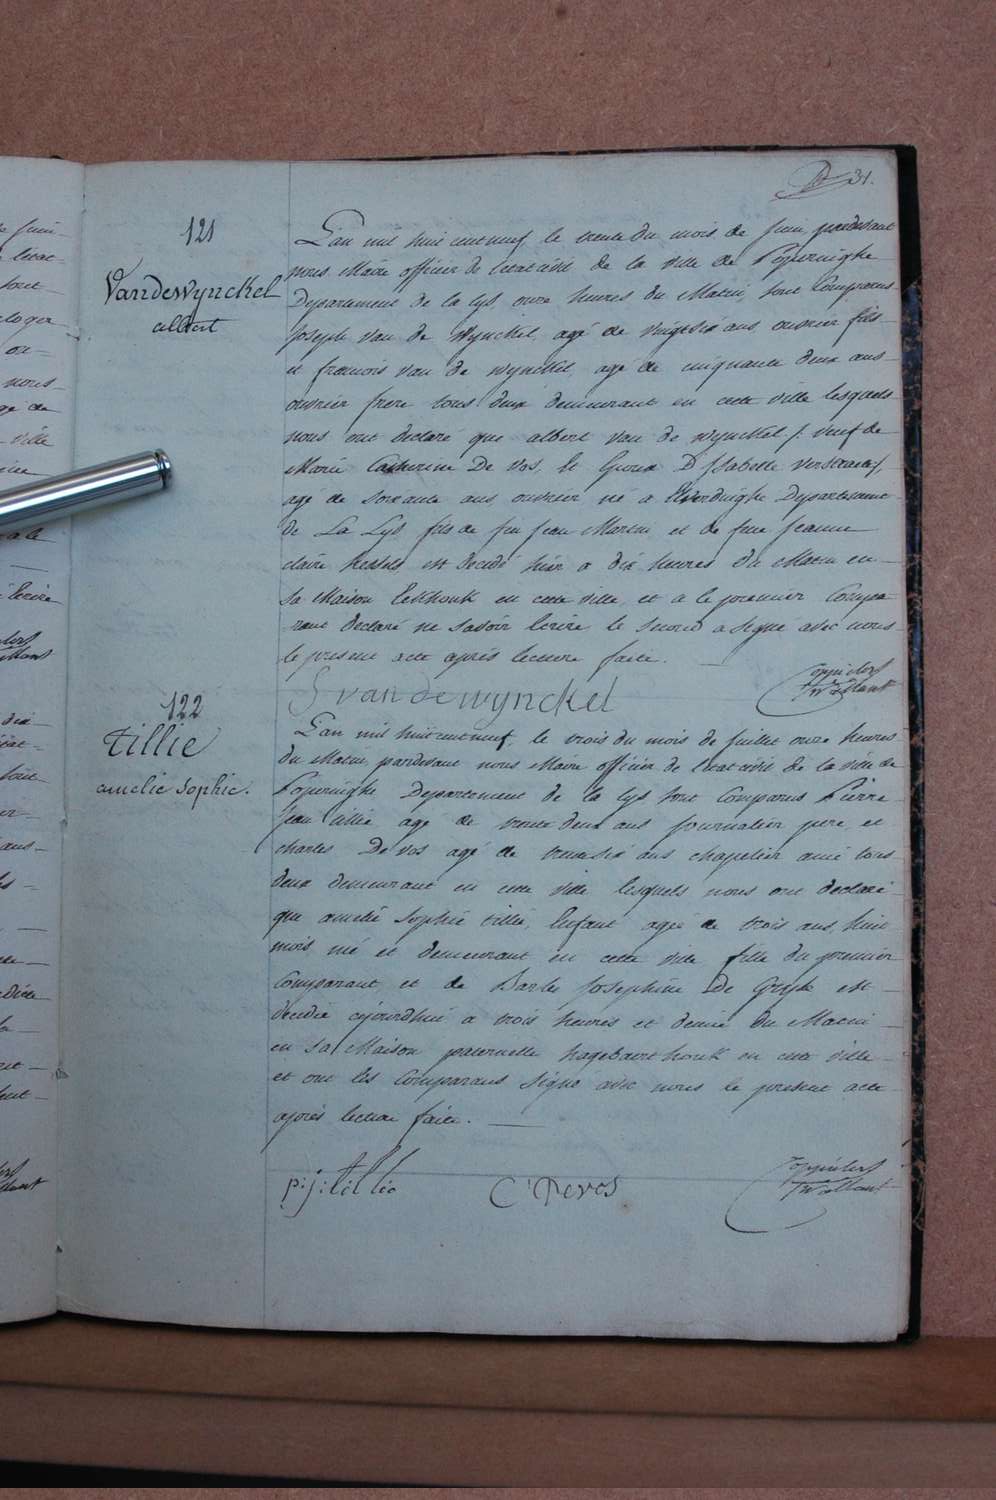 31.
121
Vandewynckel
albert
L'an mil huit cent neuf le trente du mois de Juin, pardevant
nous Maire officier de l'etat civil de la ville de Poperinghe
Departement de la Lys, onze heures du Matin, sont Comparus
Joseph van de Wynckel, agé de vingt six ans, ouvrier fils
et francois van de wynckel, agé de cinquante deux ans
ouvrier frere tous deux demeurant en cette ville lesquels
nous ont declaré que albert van de wynckel /: veuf de
Marie Catherine De vos, Et Epoux D'Isabelle
agé de soixante ans, ouvrier, né a Elverdinghe Departement
de La Lys fils de feu Jean Martin et de feue Jeanne
claire Kessels est decedé hier a dix heures du Matin en
sa Maison Eekhouk en cette ville, et a le premier Compa
rant declaré ne savoir Ecrire le second a signé avec nous
le present acte après lecture faite.
F vandewynckel
122
tillie
amelie Sophie.
L'an mil huit cent neuf, le trois du mois de Juillet onze heures
du Matin, pardevant nous Maire officier de l'etat civil de la ville de
Poperinghe Departement de la Lys sont Comparus Pierre
Jean tillie agé de trente deux ans Journalier pere, et
charles De vos agé de trente six ans chapelier ami tous
deux demeurant en cette ville lesquels nous ont declaré
que amelie Sophie tillie, Enfant agée de trois ans, huit
mois, né et demeurant en cette ville fille du premier
Comparant, et de Barbe Josephine De Gryse est
decedée cejourdhui a trois heures et demie du Matin
en sa Maison paternelle hagebaerthouk en cette ville
et ont les Comparans signé avec nous le present acte
après lecture faite.
p: j: tillie C: Devos